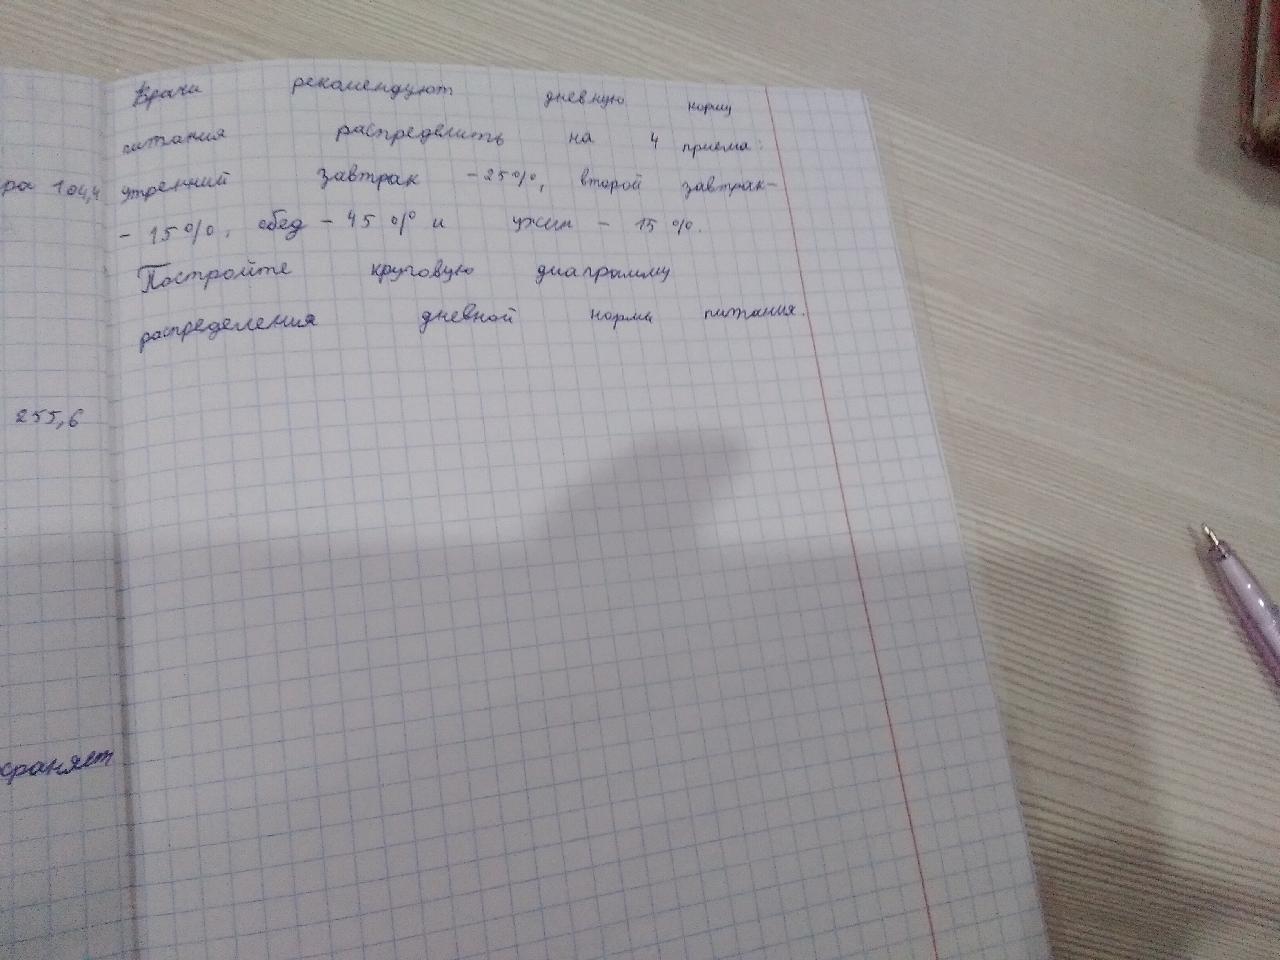 ра 104,4
255,6
храняет
Врачи рекомендуют дневную норму
питания распределить на 4 приема:
утренний завтрак - 25%, второй завтрак-
- 15%, обед - 45% и ужин - 15%.
Постройте круговую диаграмму
распределения дневной нормы питания.